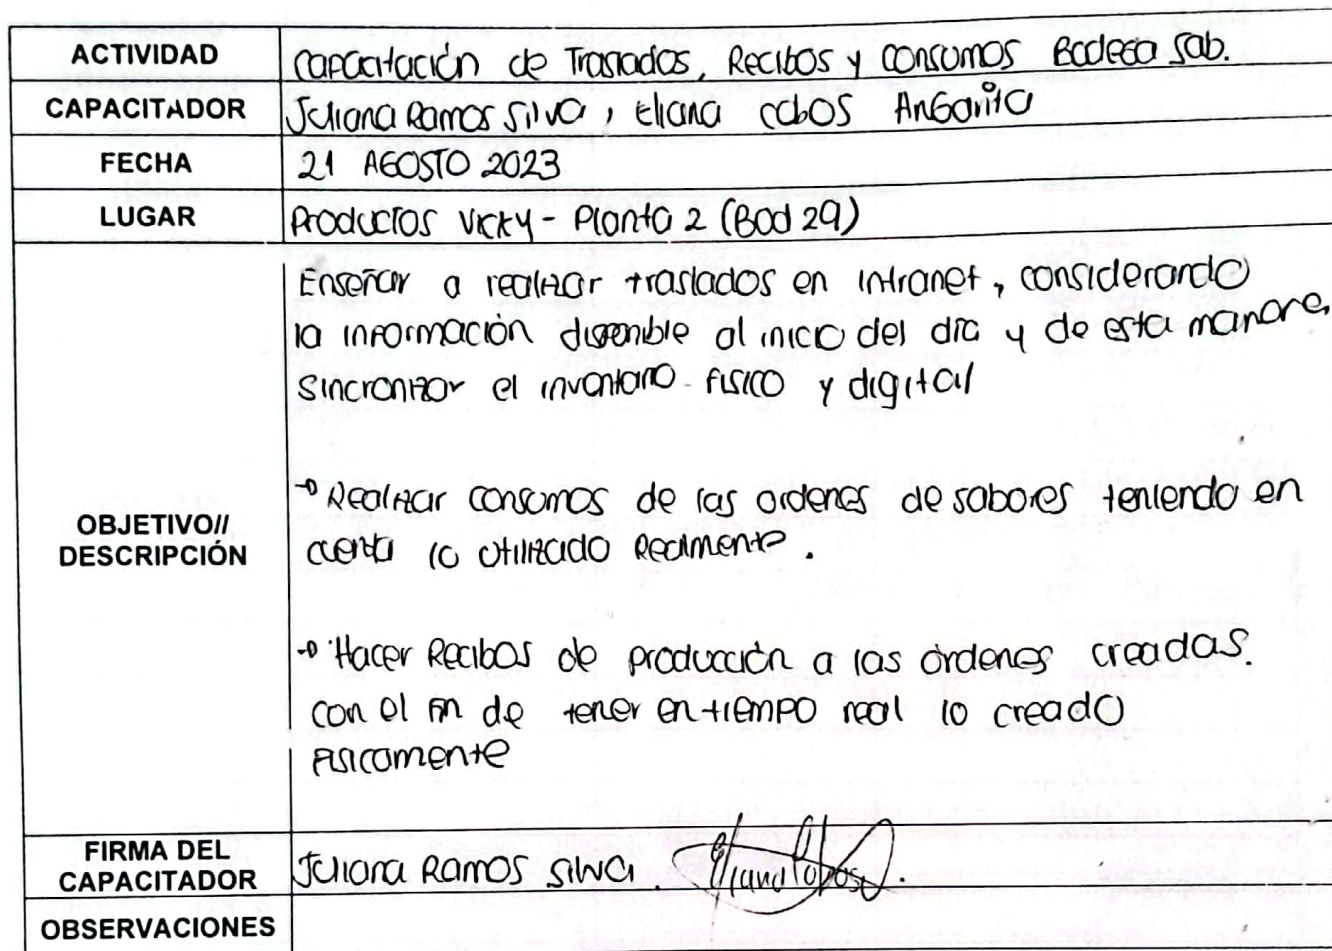 ACTIVIDAD Capacitación de Traslados, Recibos y consumos Bodega Sab.
CAPACITADOR Juliana Ramos Silva, Eliana Cobos Angarita
FECHA 21 AGOSTO 2023
LUGAR Productos Vicky - Planta 2 (Bod 29)
OBJETIVO//
DESCRIPCIÓN
Enseñar a realizar traslados en intranet, considerando
la información disponible al inicio del día y de esta manera,
sincronizar el inventario fisico y digital
Realizar consumos de las ordenes de sabores teniendo en
cuenta lo utilizado Realmente.
Hacer Recibos de producción a las órdenes creadas.
con el fin de tener en tiempo real lo creado
Fisicamente
FIRMA DEL
CAPACITADOR
Juliana Ramos Silva. Eliana Cobos.
OBSERVACIONES